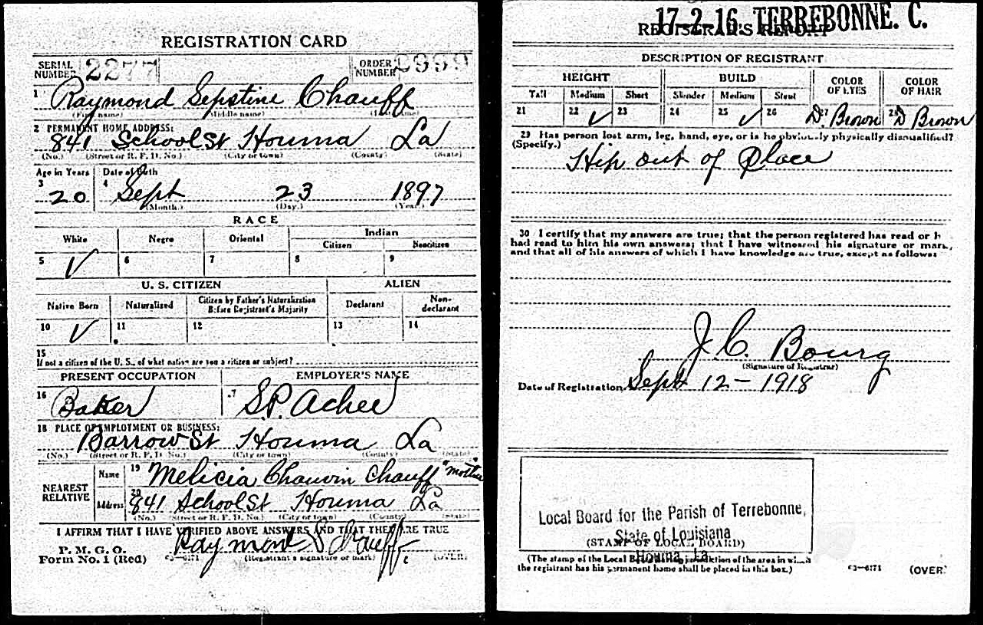 REGISTRATION CARD
SERIAL NUMBER 2277 ORDER NUMBER
1 Raymond Sepstine Chauff
(First name) (Middle name)
2 PERMANENT HOME ADDRESS:
841 School St Houma La
(No.) (Street or R. F. D. No.) (City or town) (County) (State)
Age in Years Date of Birth
3 20 4 Sept 23 1897
(Month.) (Day.) (Year.)
RACE
White Negro Oriental Indian
Citizen Noncitizen
5 ✓ 6 7 8 9
U. S. CITIZEN ALIEN
Native Born Naturalized Citizen by Father's Naturalization Before Registrant's Majority Declarant Non-declarant
10 ✓ 11 12 13 14
15
If not a citizen of the U. S., of what nation are you a citizen or subject?
PRESENT OCCUPATION EMPLOYER'S NAME
16 Baker 17 S.P. Achee
18 PLACE OF EMPLOYMENT OR BUSINESS:
Barrow St Houma La
(No.) (Street or R. F. D. No.) (City or town) (County) (State)
NEAREST RELATIVE Name 19 Melicia Chauvin Chauff "mother
Address 20 841 School St Houma La
(No.) (Street or R. F. D. No.) (City or town) (County) (State)
I AFFIRM THAT I HAVE VERIFIED ABOVE ANSWERS AND THAT THEY ARE TRUE
P. M. G. O.
Form No. 1 (Red) 03-6171 Raymond S Chauff
(Registrant's signature or mark) (OVER)
17-2-16 TERREBONNE. C.
REGISTRAR'S REPORT
DESCRIPTION OF REGISTRANT
HEIGHT BUILD COLOR OF EYES COLOR OF HAIR
Tall Medium Short Slender Medium Stout
21 22 ✓ 23 24 25 ✓ 26 27 D Brown 28 D Brown
29 Has person lost arm, leg, hand, eye, or is he obviously physically disqualified?
(Specify.) Hip out of Place
30 I certify that my answers are true; that the person registered has read or h
had read to him his own answers; that I have witnessed his signature or mark,
and that all of his answers of which I have knowledge are true, except as follows
J. C. Bourg
(Signature of Registrar)
Date of Registration Sept 12 - 1918
Local Board for the Parish of Terrebonne,
State of Louisiana
(STAMP OF LOCAL BOARD)
Houma, La.
(The stamp of the Local Board having jurisdiction of the area in which
the registrant has his permanent home shall be placed in this box.)
03-6171 (OVER)